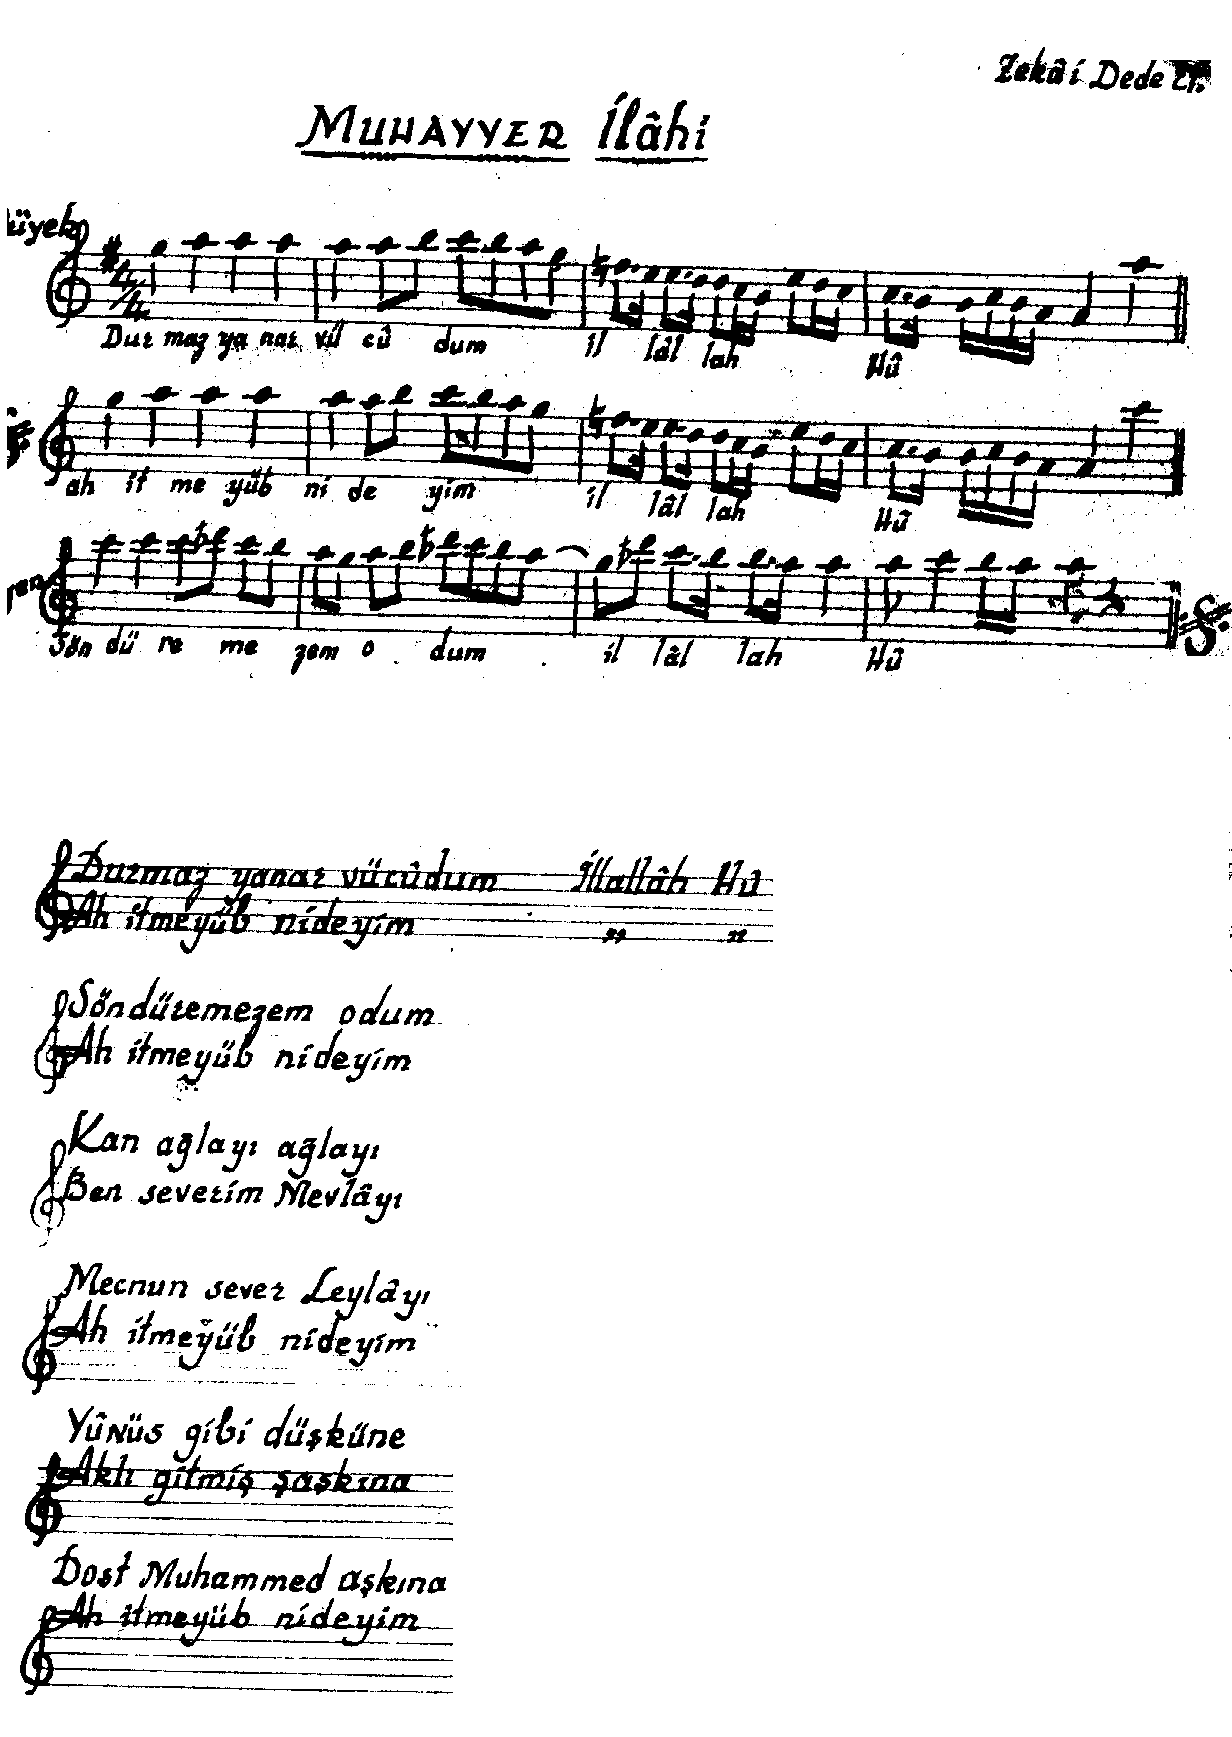 Zekâi Dede Ef.
MUHAYYER İlâhi
üyek
4/4
Dur maz ya nar vü cû dum il lâl lah Hû
ah it me yüb ni de yim il lâl lah Hû
Sön dü re me zem o dum il lâl lah Hû
Durmaz yanar vücûdum İllallâh Hû
Ah itmeyüb nideyim " "
Söndüremezem odum
Ah itmeyüb nideyim
Kan ağlayı ağlayı
Ben severim Mevlâyı
Mecnun sever Leylâyı
Ah itmeyüb nideyim
YÛNÜS gibi düşküne
Aklı gitmiş şaşkına
Dost Muhammed aşkına
Ah itmeyüb nideyim